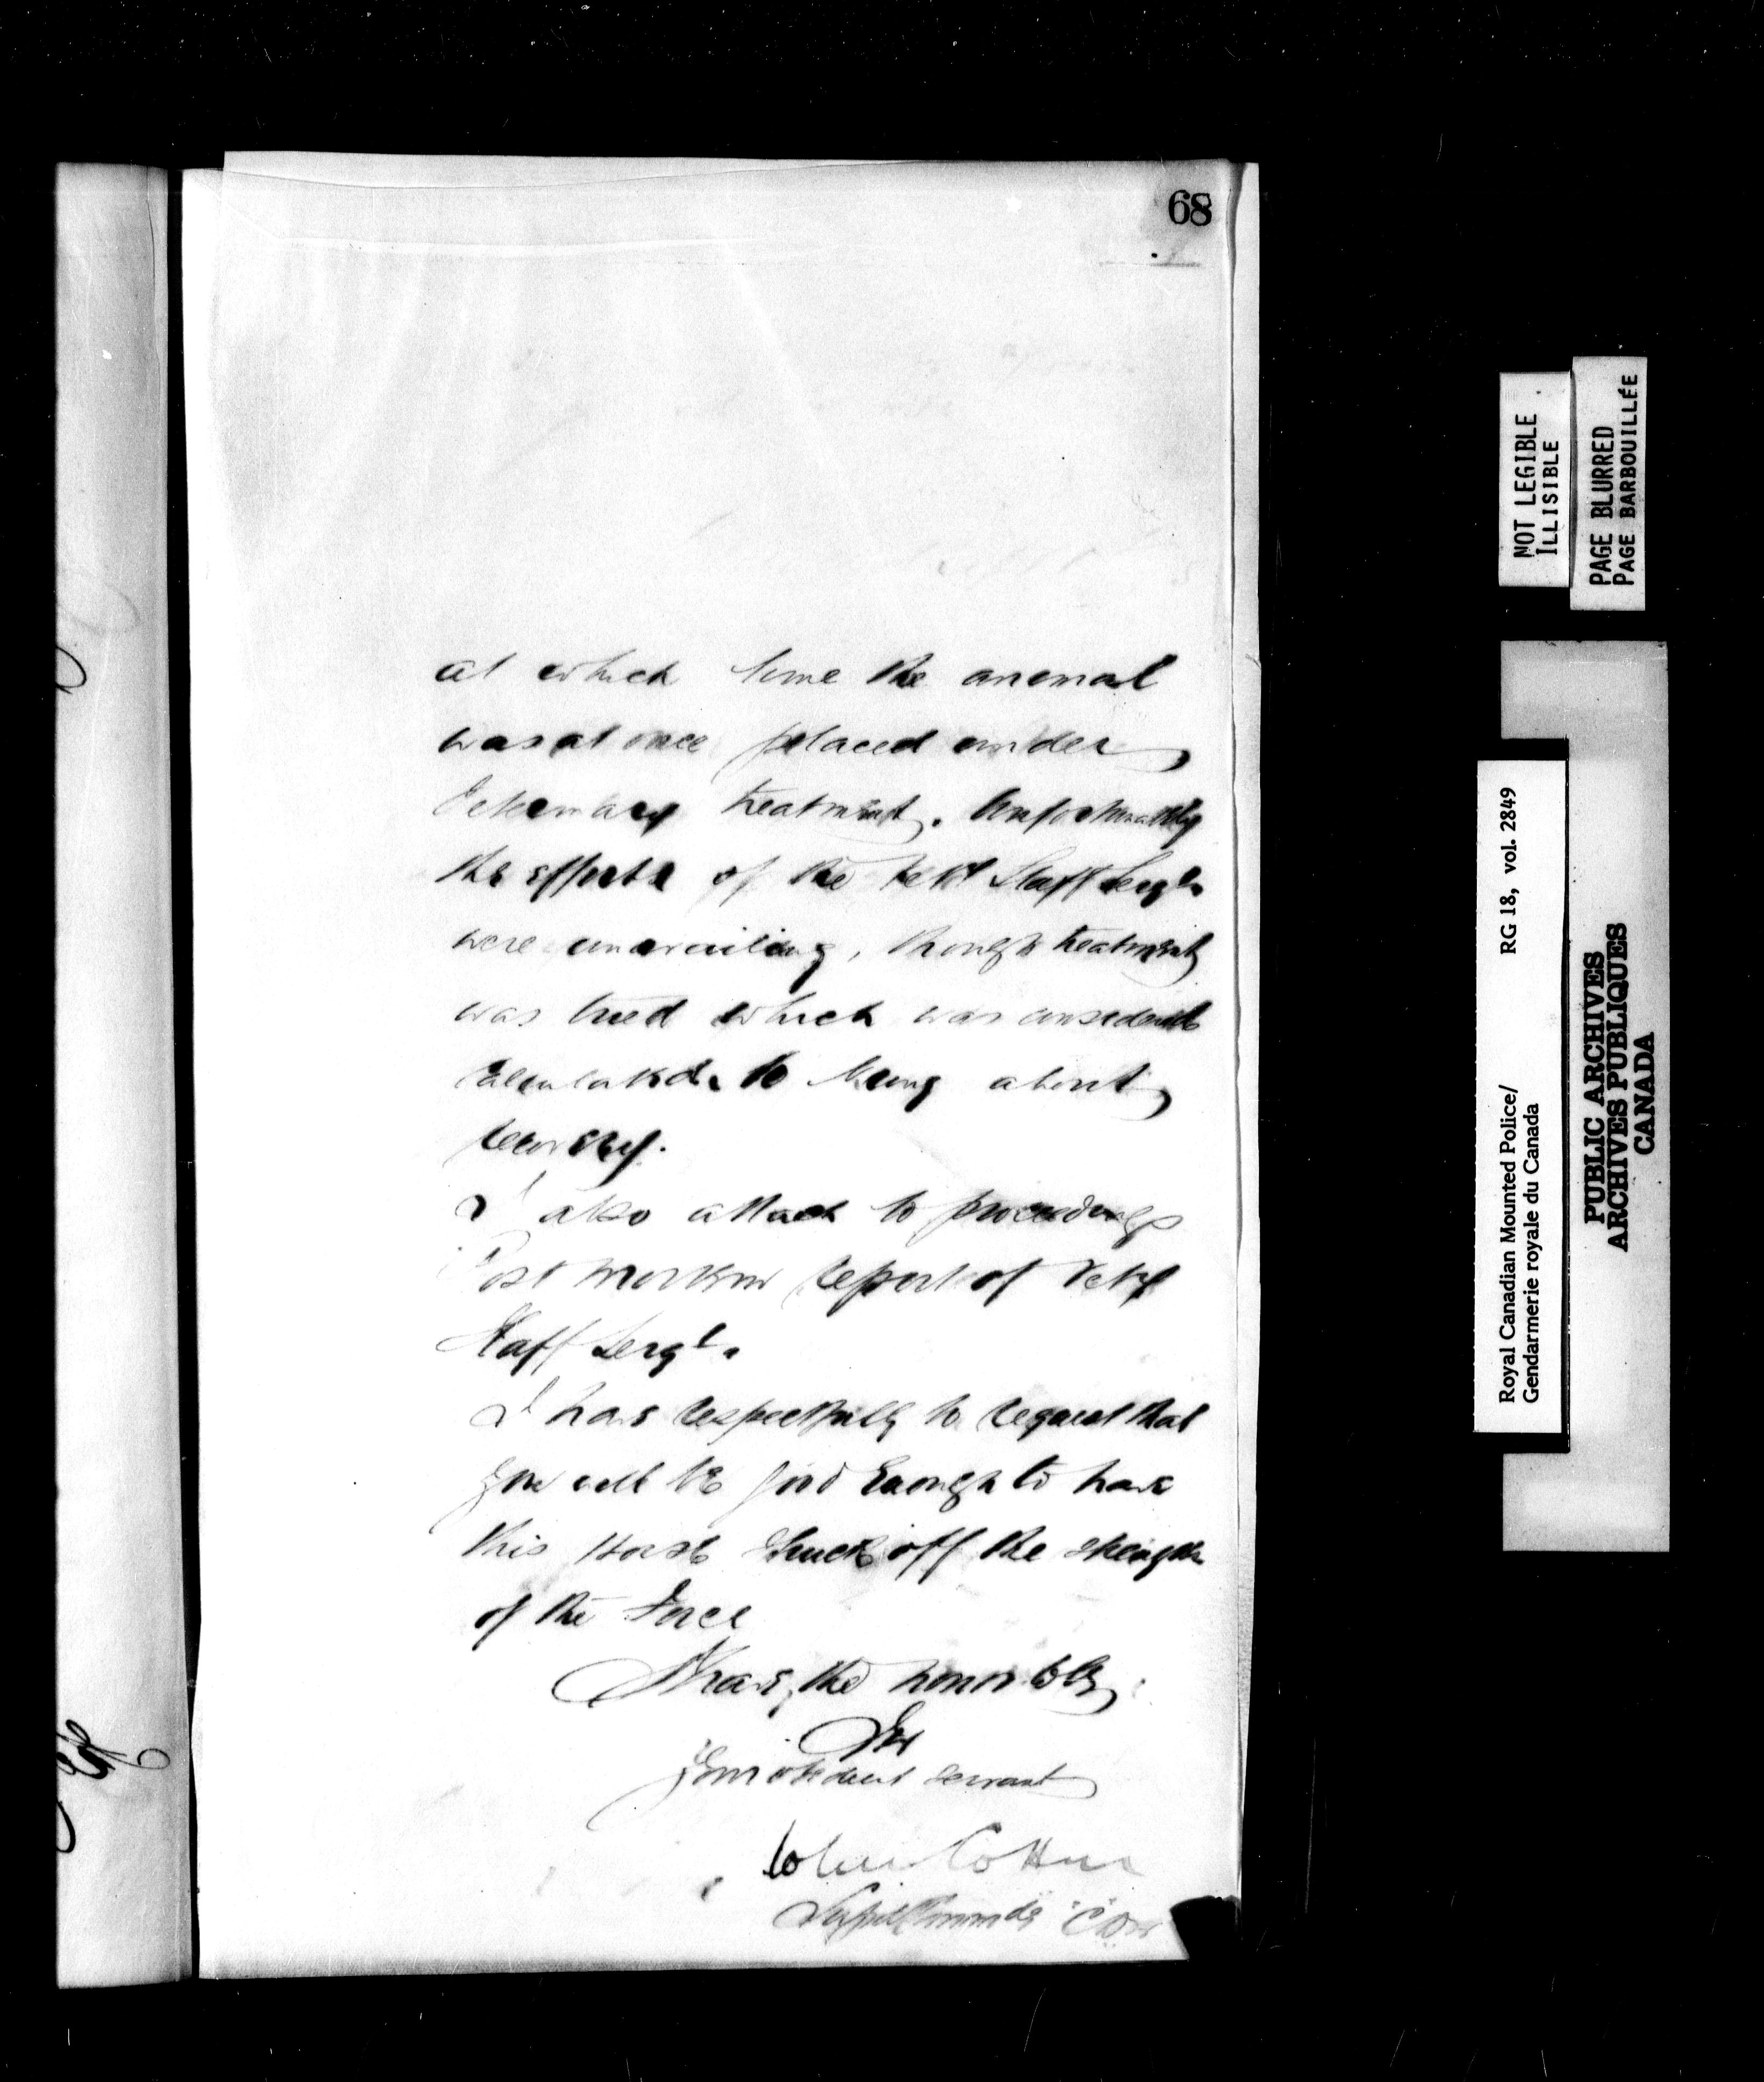 68
at which time the animal
was at once placed under
Veterinary treatment. Unfortunately
the efforts of the Vety Staff Sergt.
were unavailing, though treatment
was tried which was considered
calculated to bring about
recovery.
I also attach to proceedings
Post mortem report of Vety
Staff Sergt.
I have respectfully to request that
you will be good enough to have
this Horse struck off the strength
of the Force
I have the honor to be,
Sir
Your obedient servant
John Cotton
Supt Commdg "C" Divn
NOT LEGIBLE
ILLISIBLE
PAGE BLURRED
PAGE BARBOUILLÉE
Royal Canadian Mounted Police/ RG 18, vol. 2849
Gendarmerie royale du Canada
PUBLIC ARCHIVES
ARCHIVES PUBLIQUES
CANADA